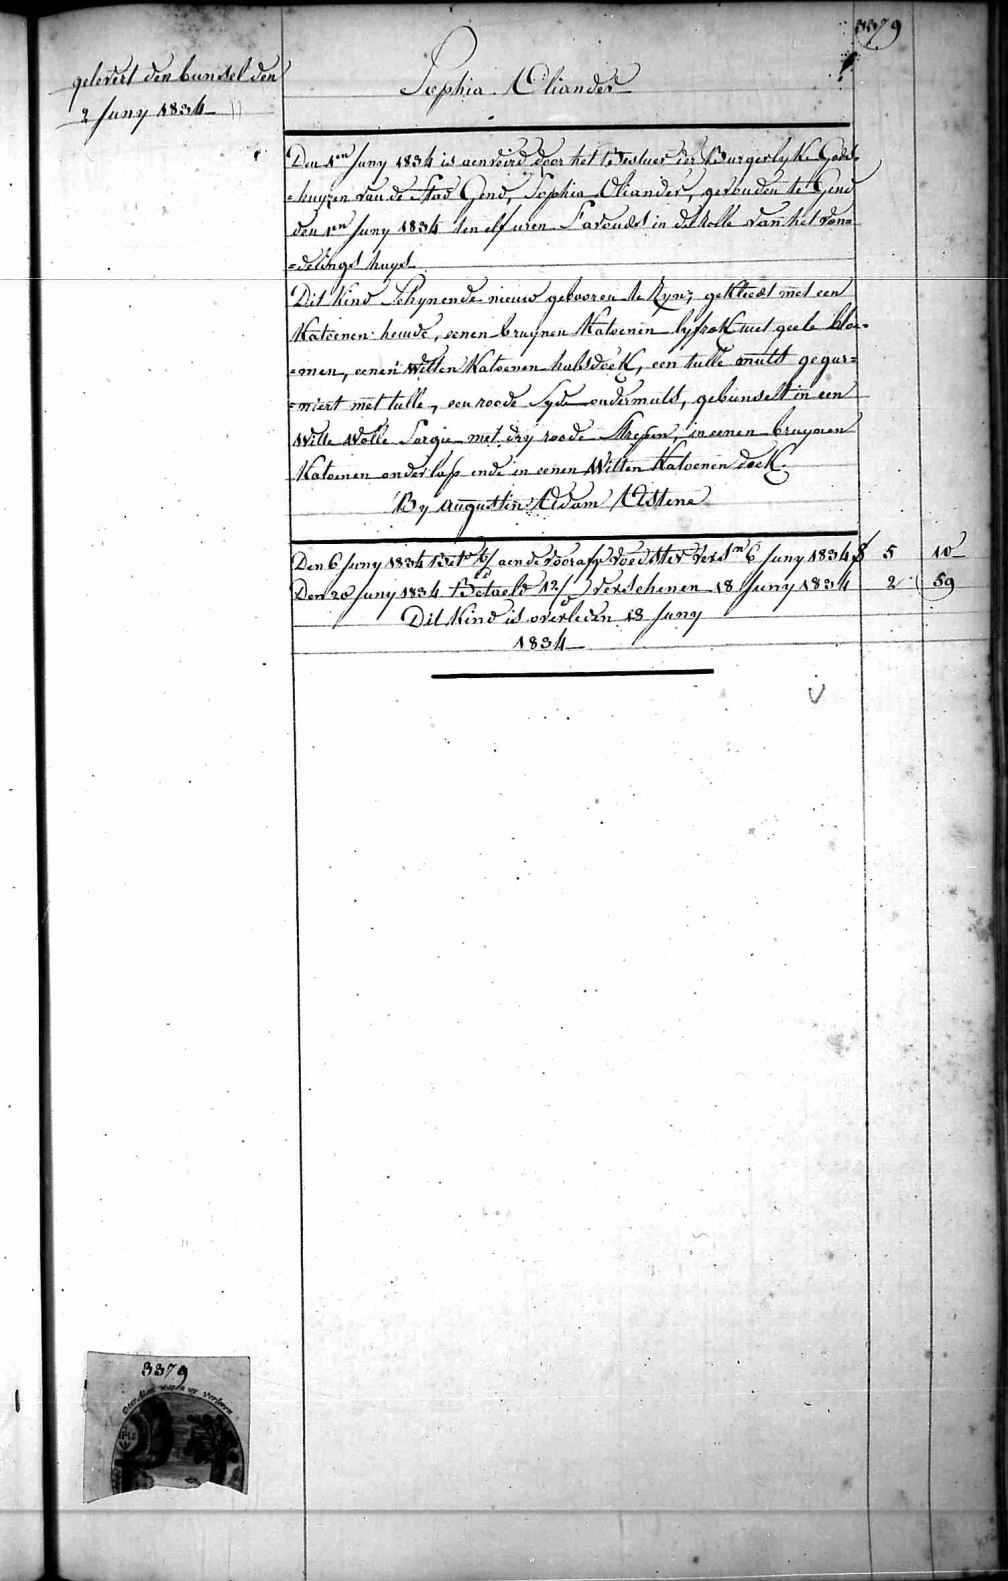 3379
gelevert den bunsel den
2 Juny 1834
Sophia Oliander
Den 1en Juny 1834 is aenveird door het Bestuer der Burgerlyke Gods-
=huyzen van de Stad Gend, Sophia Oliander, gevonden te Gend
den 1en Juny 1834 ten elf uren S'avonds in de Rolle van het von=
=delings huys
Dit Kind Schynende nieuw gebooren te Zyn, gekleedt met een
Katoenen hemde, eenen bruynen Katoenen lyfrok met geele bloe=
=men, eenen Witten Katoenen halsdoek, een tulle muts gegar=
=niert met tulle, een roode Syde ondermuts, gebunselt in een
Witte Wolle Sargie met dry roode Strepen, in eenen bruynen
Katoenen onderlap ende in eenen Witten Katoenen doek.
By Augustin Adam Astene
Den 6 Juny 1834 Bet. aen de voorafg. Voedster vers. 6 Juny 1834 5 10
Den 20 Juny 1834 Betaeld 12/ verschenen 18 Juny 1834 2 59
Dit Kind is overleden 18 Juny
1834
3379